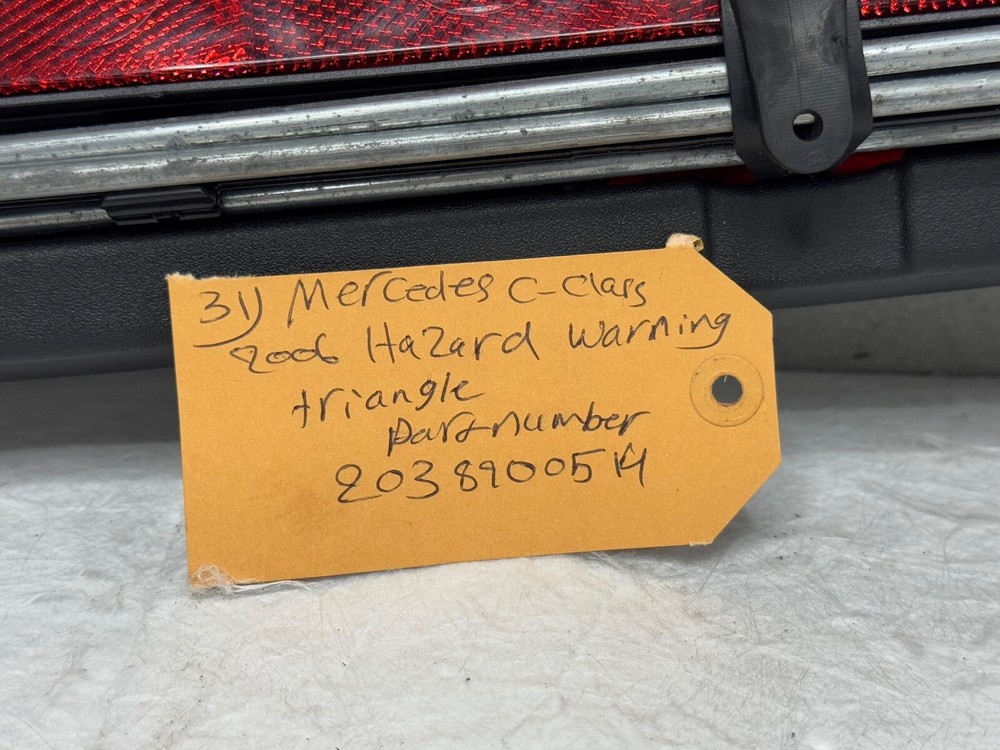 31) Mercedes C-Class
2006 Hazard warning
triangle
part number
2038900514